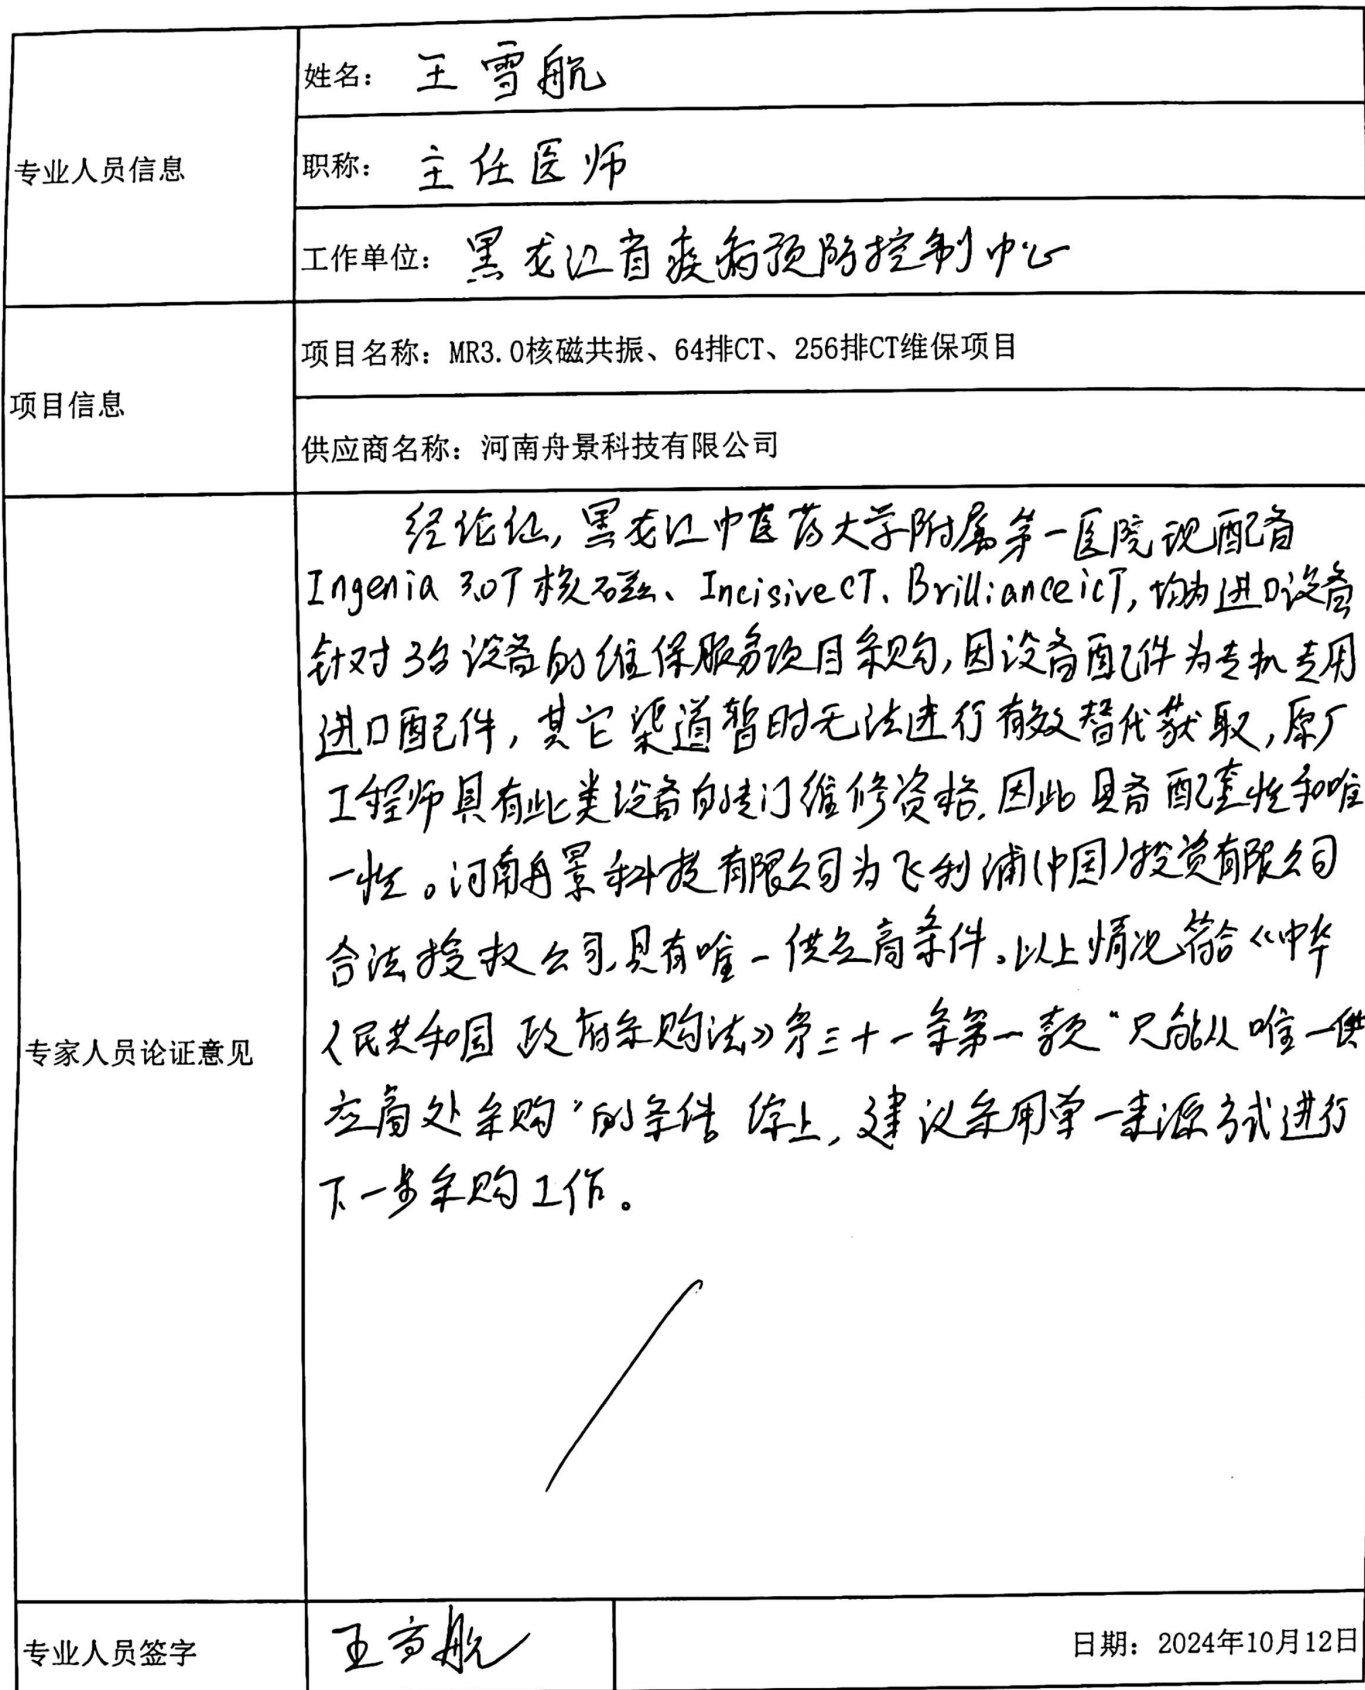 专业人员信息
姓名： 王雪航
职称： 主任医师
工作单位： 黑龙江省疾病预防控制中心
项目信息
项目名称：MR3.0核磁共振、64排CT、256排CT维保项目
供应商名称：河南舟景科技有限公司
专家人员论证意见
经论证，黑龙江中医药大学附属第一医院现配备
Ingenia 3.0T核磁、IncisiveCT、BrillianceiCT，均为进口设备
针对3台设备的维保服务项目采购，因设备配件为专机专用
进口配件，其它渠道暂时无法进行有效替代获取，原厂
工程师具有此类设备的专门维修资格，因此具备配套性和唯
一性。河南舟景科技有限公司为飞利浦（中国）投资有限公司
合法授权公司，具有唯一供应商条件。以上情况符合《中华
人民共和国政府采购法》第三十一条第一款“只能从唯一供
应商处采购”的条件 综上，建议采用单一来源方式进行
下一步采购工作。
专业人员签字
王雪航
日期：2024年10月12日